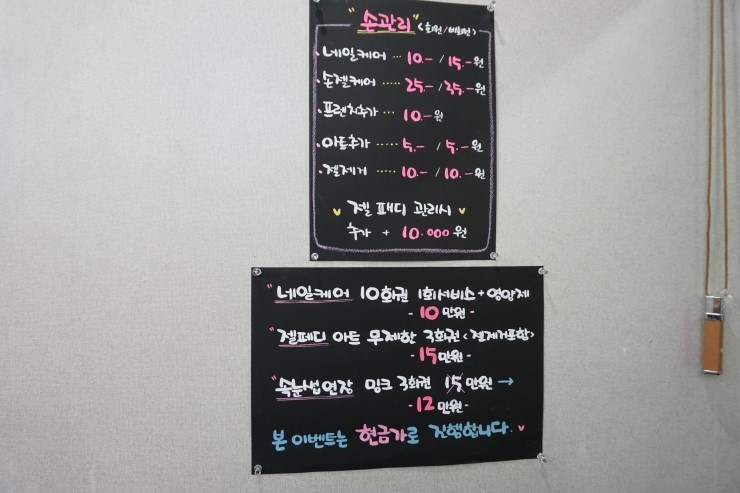 "손관리" <회원/비회원>
• 네일케어 ... 10.- / 15.- 원
• 손젤케어 ..... 25.- / 35.- 원
• 프렌치추가 .... 10.- 원
• 아트추가 ..... 5.- / 5.- 원
• 젤제거 ..... 10.- / 10.- 원
젤 패디 관리시
추가 + 10.000 원
"네일케어 10회권 1회서비스 + 영양제
- 10만원 -
"젤페디 아트 무제한 3회권 <젤제거포함>
- 15만원 -
"속눈썹연장 밍크 3회권 15만원 →
- 12만원 -
본 이벤트는 현금가로 진행합니다. ♥